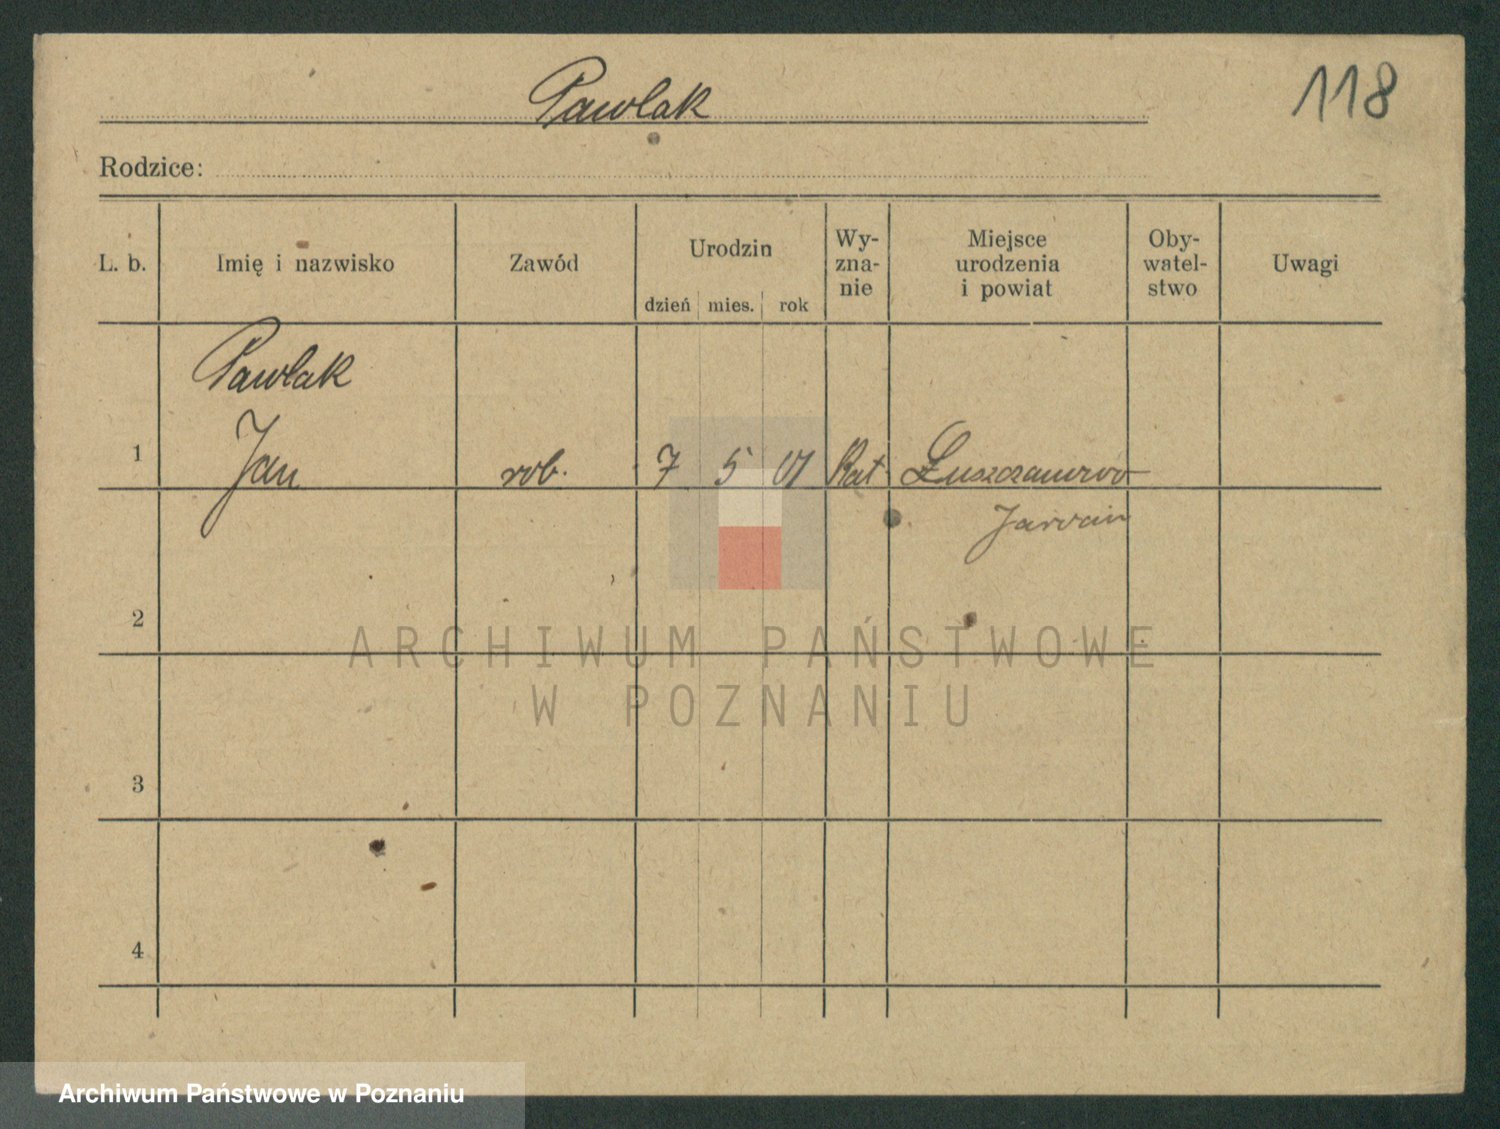 Pawlak
118
Rodzice:
L. b. Imię i nazwisko Zawód Urodzin dzień mies. rok Wy-zna-nie Miejsce urodzenia i powiat Oby-watel-stwo Uwagi
Pawlak
1 Jan rob. 7 5 01 Kat.
2
3
4
ARCHIWUM PAŃSTWOWE
W POZNANIU
Archiwum Państwowe w Poznaniu